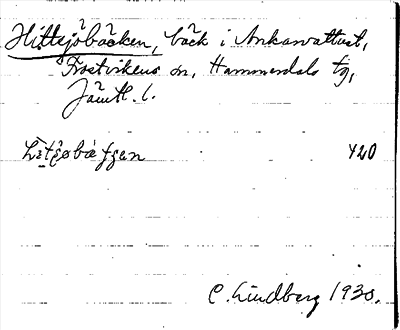 Hittsjöbäcken, bäck i Ankarvattnet,
Frostvikens sn, Hammerdals tg,
Jämtl. l.
420
C. Lindberg 1930.